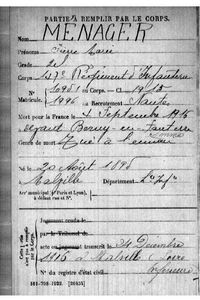 PARTIE À REMPLIR PAR LE CORPS.
Nom MÉNAGER
Prénoms Pierre Marie
Grade 2e
Corps 43e Régiment d'Infanterie
N° 10951 au Corps. — Cl. 1915
Matricule. 1996 au Recrutement Nantes
Mort pour la France le 4 Septembre 1916
Berny-en-Santerre
Somme
Genre de mort Tué à l'ennemi
Né le 20 Août 1895
Malville Département
Arr' municipal (p' Paris et Lyon),
à défaut rue et N°.
Jugement rendu le
par le Tribunal de
acte ou jugement transcrit le 31 Décembre
1916 à Malville (Loire
Inférieure
N° du registre d'état civil